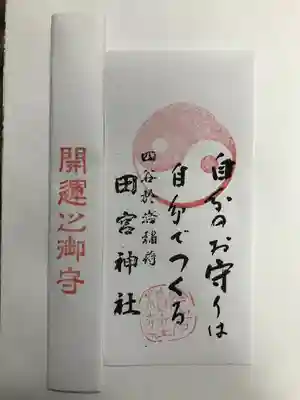 開運之御守
自分のお守りは
自分でつくる
四谷於岩稲荷
田宮神社